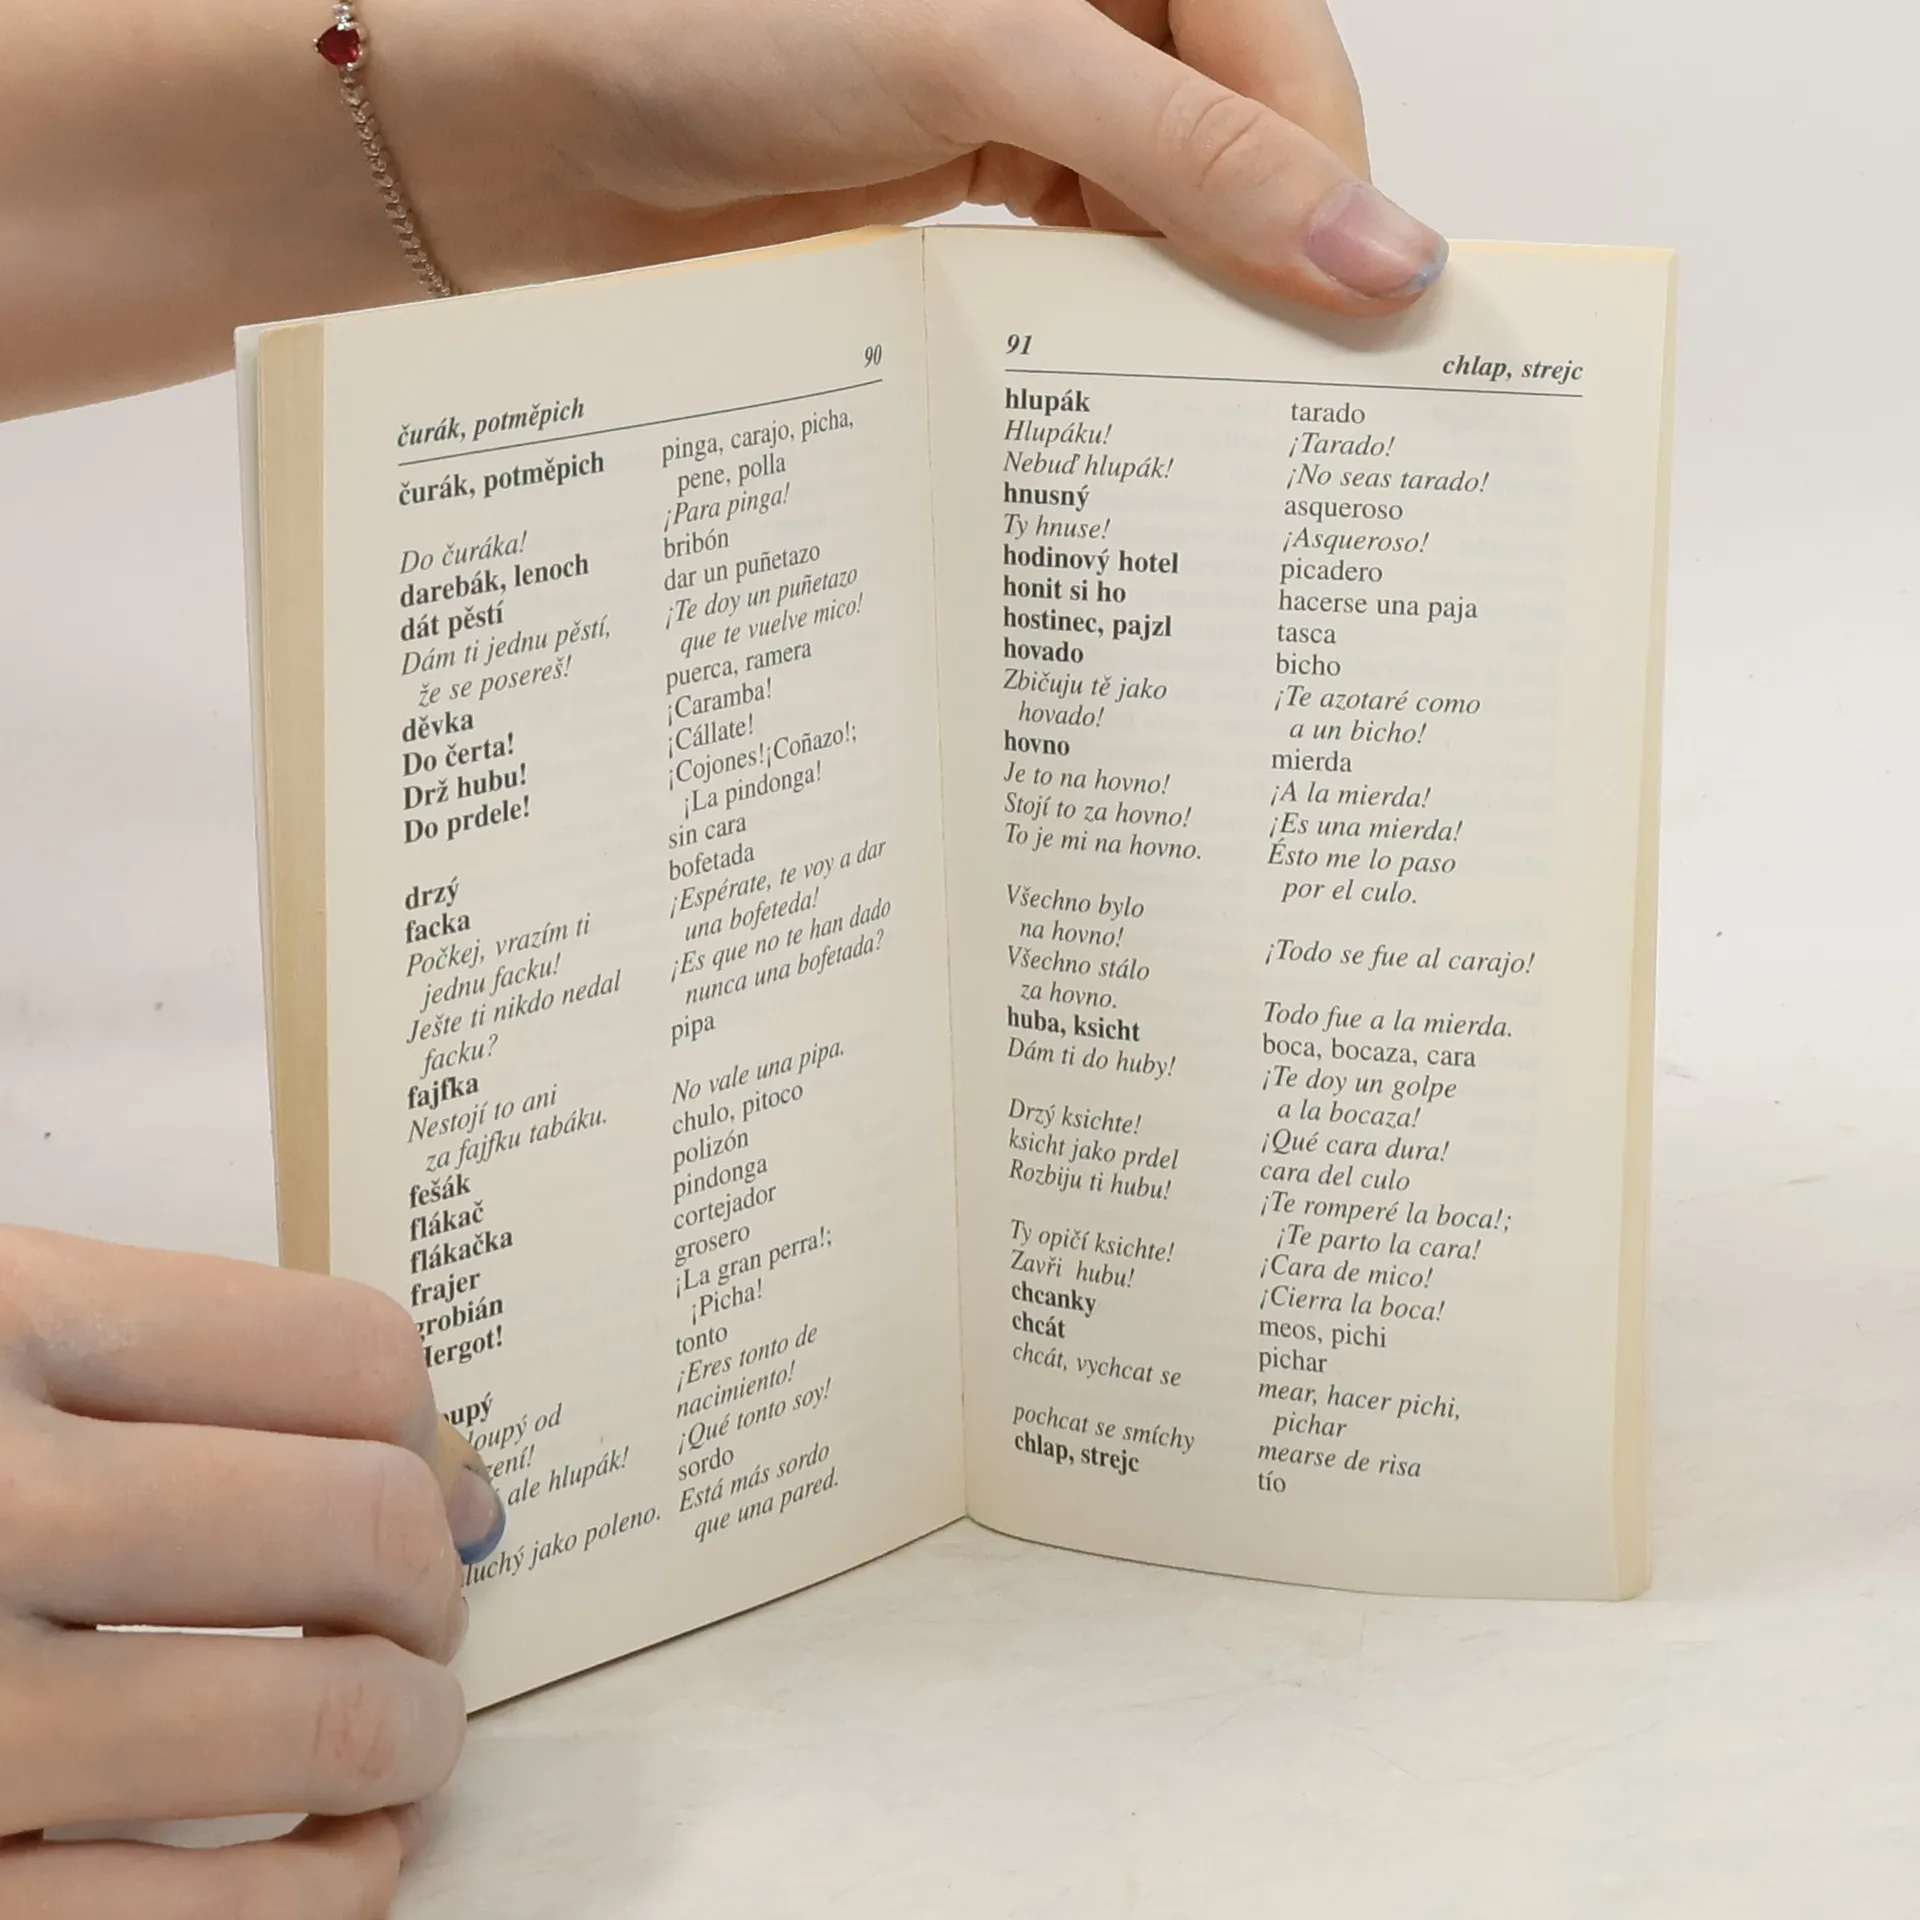 90
čurák, potměpich
čurák, potměpich
pinga, carajo, picha,
pene, polla
Do čuráka!
¡Para pinga!
darebák, lenoch
bribón
dát pěstí
dar un puñetazo
Dám ti jednu pěstí,
¡Te doy un puñetazo
že se posereš!
que te vuelve mico!
děvka
puerca, ramera
Do čerta!
¡Caramba!
Drž hubu!
¡Cállate!
Do prdele!
¡Cojones!¡Coñazo!;
¡La pindonga!
drzý
sin cara
facka
bofetada
Počkej, vrazím ti
¡Espérate, te voy a dar
jednu facku!
una bofeteda!
Ješte ti nikdo nedal
¡Es que no te han dado
facku?
nunca una bofetada?
fajfka
pipa
Nestojí to ani
za fajfku tabáku.
No vale una pipa.
fešák
chulo, pitoco
flákač
polizón
flákačka
pindonga
frajer
cortejador
grobián
grosero
Hergot!
¡La gran perra!;
¡Picha!
tonto
¡Eres tonto de
od
nacimiento!
ale hlupák!
¡Qué tonto soy!
sordo
jako poleno.
Está más sordo
que una pared.
91
chlap, strejc
hlupák
tarado
Hlupáku!
¡Tarado!
Nebuď hlupák!
¡No seas tarado!
hnusný
asqueroso
Ty hnuse!
¡Asqueroso!
hodinový hotel
picadero
honit si ho
hacerse una paja
hostinec, pajzl
tasca
hovado
bicho
Zbičuju tě jako
¡Te azotaré como
hovado!
a un bicho!
hovno
mierda
Je to na hovno!
¡A la mierda!
Stojí to za hovno!
¡Es una mierda!
To je mi na hovno.
Ésto me lo paso
por el culo.
Všechno bylo
na hovno!
¡Todo se fue al carajo!
Všechno stálo
za hovno.
Todo fue a la mierda.
huba, ksicht
boca, bocaza, cara
Dám ti do huby!
¡Te doy un golpe
a la bocaza!
Drzý ksichte!
¡Qué cara dura!
ksicht jako prdel
cara del culo
Rozbiju ti hubu!
¡Te romperé la boca!;
¡Te parto la cara!
Ty opičí ksichte!
¡Cara de mico!
Zavři hubu!
¡Cierra la boca!
chcanky
meos, pichi
chcát
pichar
chcát, vychcat se
mear, hacer pichi,
pichar
pochcat se smíchy
mearse de risa
chlap, strejc
tío